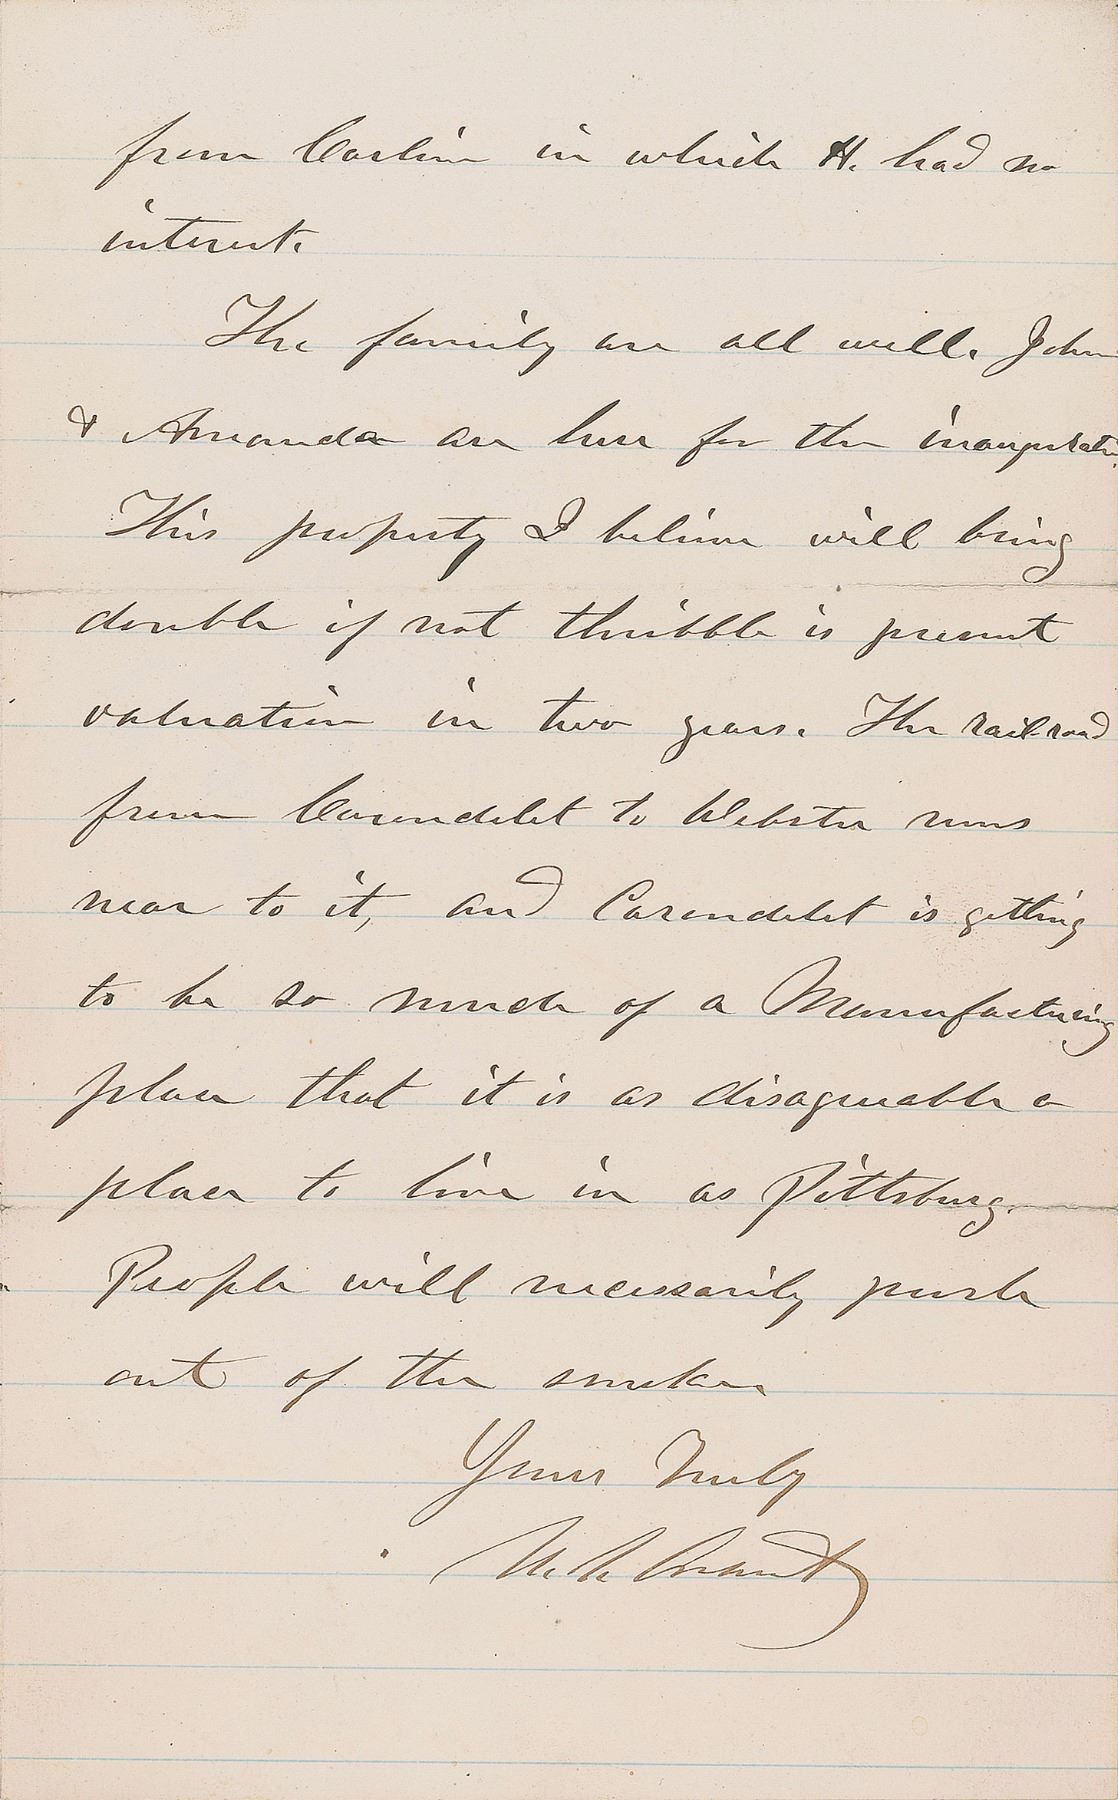 from Carlin in which H. had no
interest.
The family are all well. John
& Amanda are here for the inauguration.
This property I believe will bring
double if not thribble is present
valuation in two years. The railroad
from Carondelet to Webster runs
near to it, and Carondelet is getting
to be so much of a Manufacturing
place that it is as disagreeable a
place to live in as Pittsburg.
People will necessarily push
out of the smoke.
Yours Truly
U. S. Grant